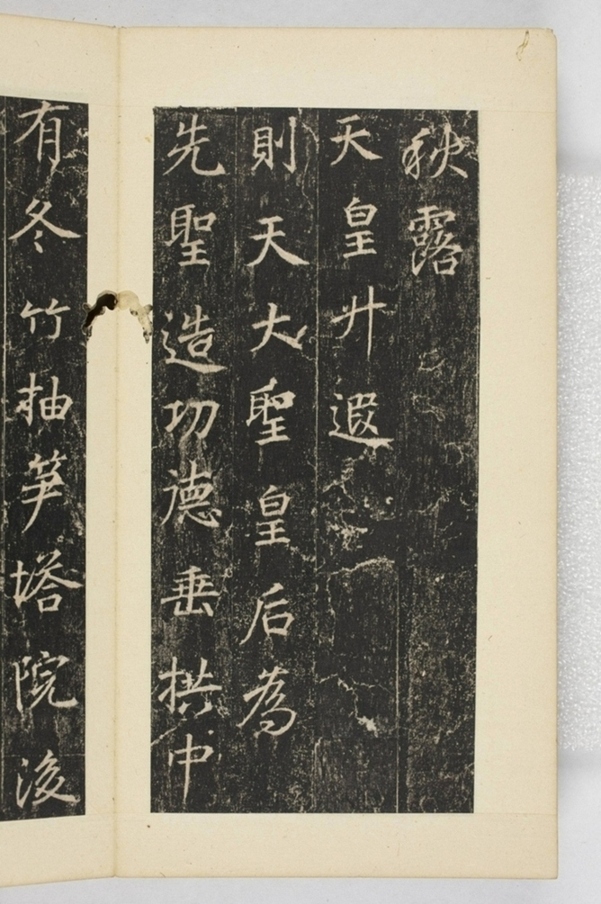 秋露
天皇升遐
則天大聖皇后為
先聖造功德垂拱中
有冬竹抽笋塔院後